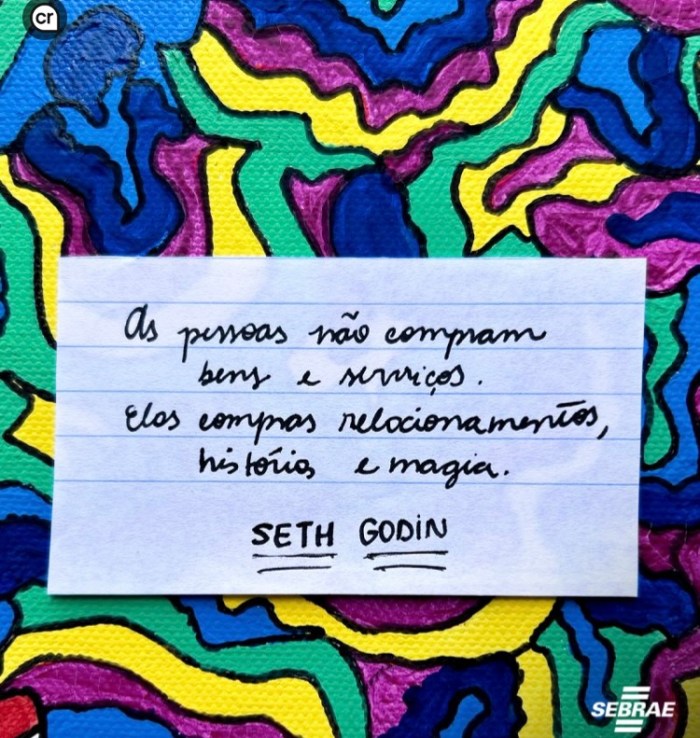 cr
As pessoas não compram
bens e serviços.
Elas compras relacionamentos,
histórias e magia.
SETH GODIN
SEBRAE